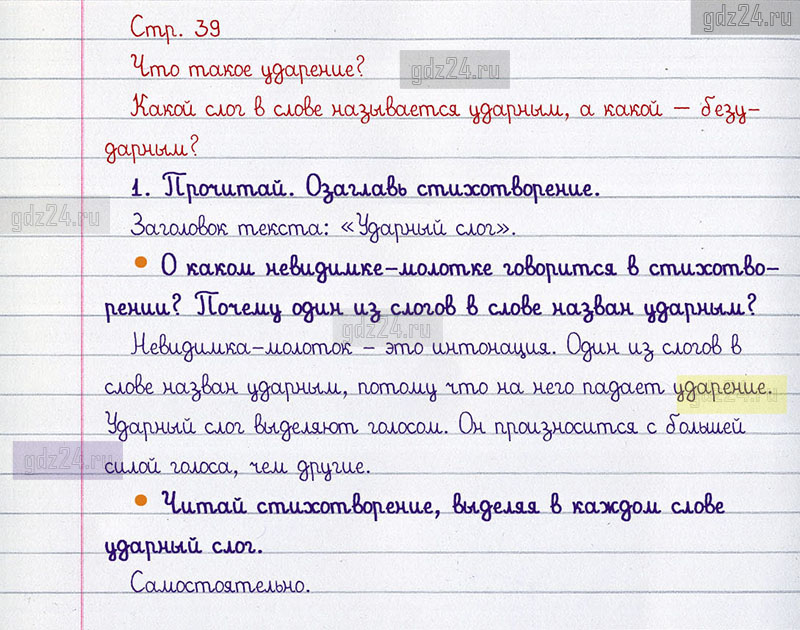 gdz24.ru
Стр. 39
Что такое ударение?
gdz24.ru
Какой слог в слове называется ударным, а какой – безу-
дарным?
1. Прочитай. Озаглавь стихотворение.
gdz24.ru
Заголовок текста: «Ударный слог».
• О каком невидимке-молотке говорится в стихотво-
рении? Почему один из слогов в слове назван ударным?
gdz24.ru
Невидимка-молоток – это интонация. Один из слогов в
слове назван ударным, потому что на него падает ударение.
gdz24.ru
Ударный слог выделяют голосом. Он произносится с большей
силой голоса, чем другие.
gdz24.ru
• Читай стихотворение, выделяя в каждом слове
ударный слог.
Самостоятельно.